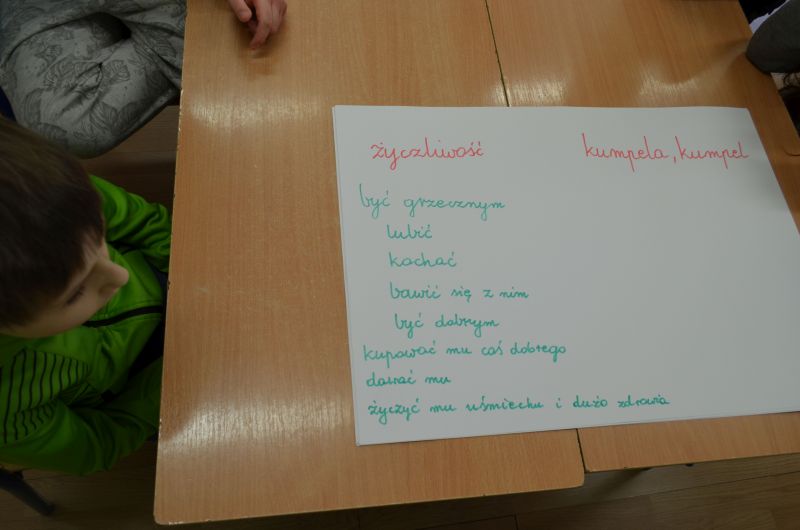 życzliwość kumpela, kumpel
być grzecznym
lubić
kochać
bawić się z nim
być dobrym
kupować mu coś dobrego
dawać mu
życzyć mu uśmiechu i dużo zdrowia